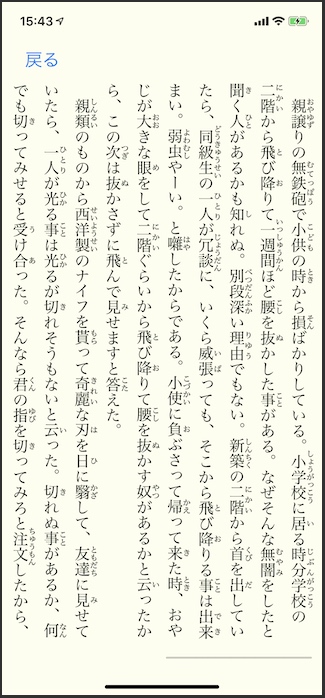 15:43
戻る
親譲りの無鉄砲で小供の時から損ばかりしている。小学校に居る時分学校の
二階から飛び降りて一週間ほど腰を抜かした事がある。なぜそんな無闇をしたと
聞く人があるかも知れぬ。別段深い理由でもない。新築の二階から首を出してい
たら、同級生の一人が冗談に、いくら威張っても、そこから飛び降りる事は出来
まい。弱虫やーい。と囃したからである。小使に負ぶさって帰って来た時、おや
じが大きな眼をして二階ぐらいから飛び降りて腰を抜かす奴があるかと云ったか
ら、この次は抜かさずに飛んで見せますと答えた。
親類のものから西洋製のナイフを貰って奇麗な刃を日に翳して、友達に見せて
いたら、一人が光る事は光るが切れそうもないと云った。切れぬ事があるか、何
でも切ってみせると受け合った。そんなら君の指を切ってみろと注文したから、